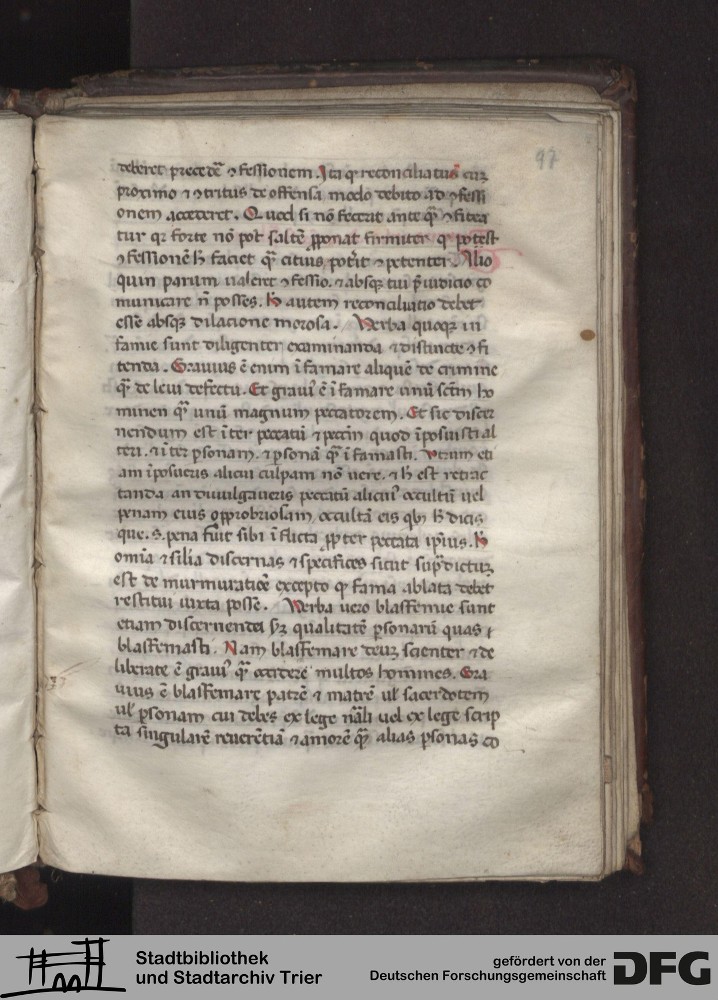 97
deberet precedē ꝯfessionem. Ita qꝫ reconciliatus cuꝫ
proximo ⁊ ꝯtritus de offensa modo debito ad ꝯfessi
onem accederet. Quod si nō fecerit ante qͣ ꝯfitea
tur qꝛ forte nō pot̄ saltē ꝓponat firmiter qꝫ potest
ꝯfessionē h̄ faciet qͣ citius pot̄it ⁊ petenter. Alio
quin parum ualeret ꝯfessio. ⁊ absqꝫ tui p̄iudicio co
municare n̄ posses. h̄ autem reconciliatio debet
esse absqꝫ dilacione morosa. Verba quoqꝫ in
famie sunt diligenter examinanda ⁊ distincte ꝯfi
tenda. Grauius ē enim īfamare aliquē de crimine
qͣ de leui defectu. Et graui᾽ ē īfamare unū sc̄m ho
minem qͣ unū magnum peccatorem. Et sic discer
nendum est īter peccatū ⁊ pecc̄m quod īposuisti al
teri. ⁊ īter ꝑsonam. ⁊ ꝑsonā qͣ īfamasti. Vtrum eti
am īposueris alicui culpam nō uere. ⁊ h̄ est retrac
tanda an diuulgaueris peccatū alicui᾽ occultū uel
penam eius opprobriosam occultā eis qb᾽ h̄ dicis
que. s. pena fuit sibi īflicta ꝓpter peccata ipsius. h̄
omīa ⁊ silīa discernas ⁊ specifices sicut sup̄dictuꝫ
est de murmuratiōe excepto qꝫ fama ablata debet
restitui iuxta posse. Verba uero blasfemie sunt
etiam discernenda s̄ꝫ qualitatē ꝑsonarū quas
blasfemasti. Nam blasfemare deuꝫ scienter ⁊ de
liberate ē graui᾽ qͣ occidere multos homines. Gra
uius ē blasfemare patrē ⁊ matrē ul̄ sacerdotem
ul̄ ꝑsonam cui debes ex lege nāli uel ex lege scrip
ta singularē reuerētiā ⁊ amorē qͣ alias ꝑsonas co
Stadtbibliothek
und Stadtarchiv Trier
gefördert von der
Deutschen Forschungsgemeinschaft DFG